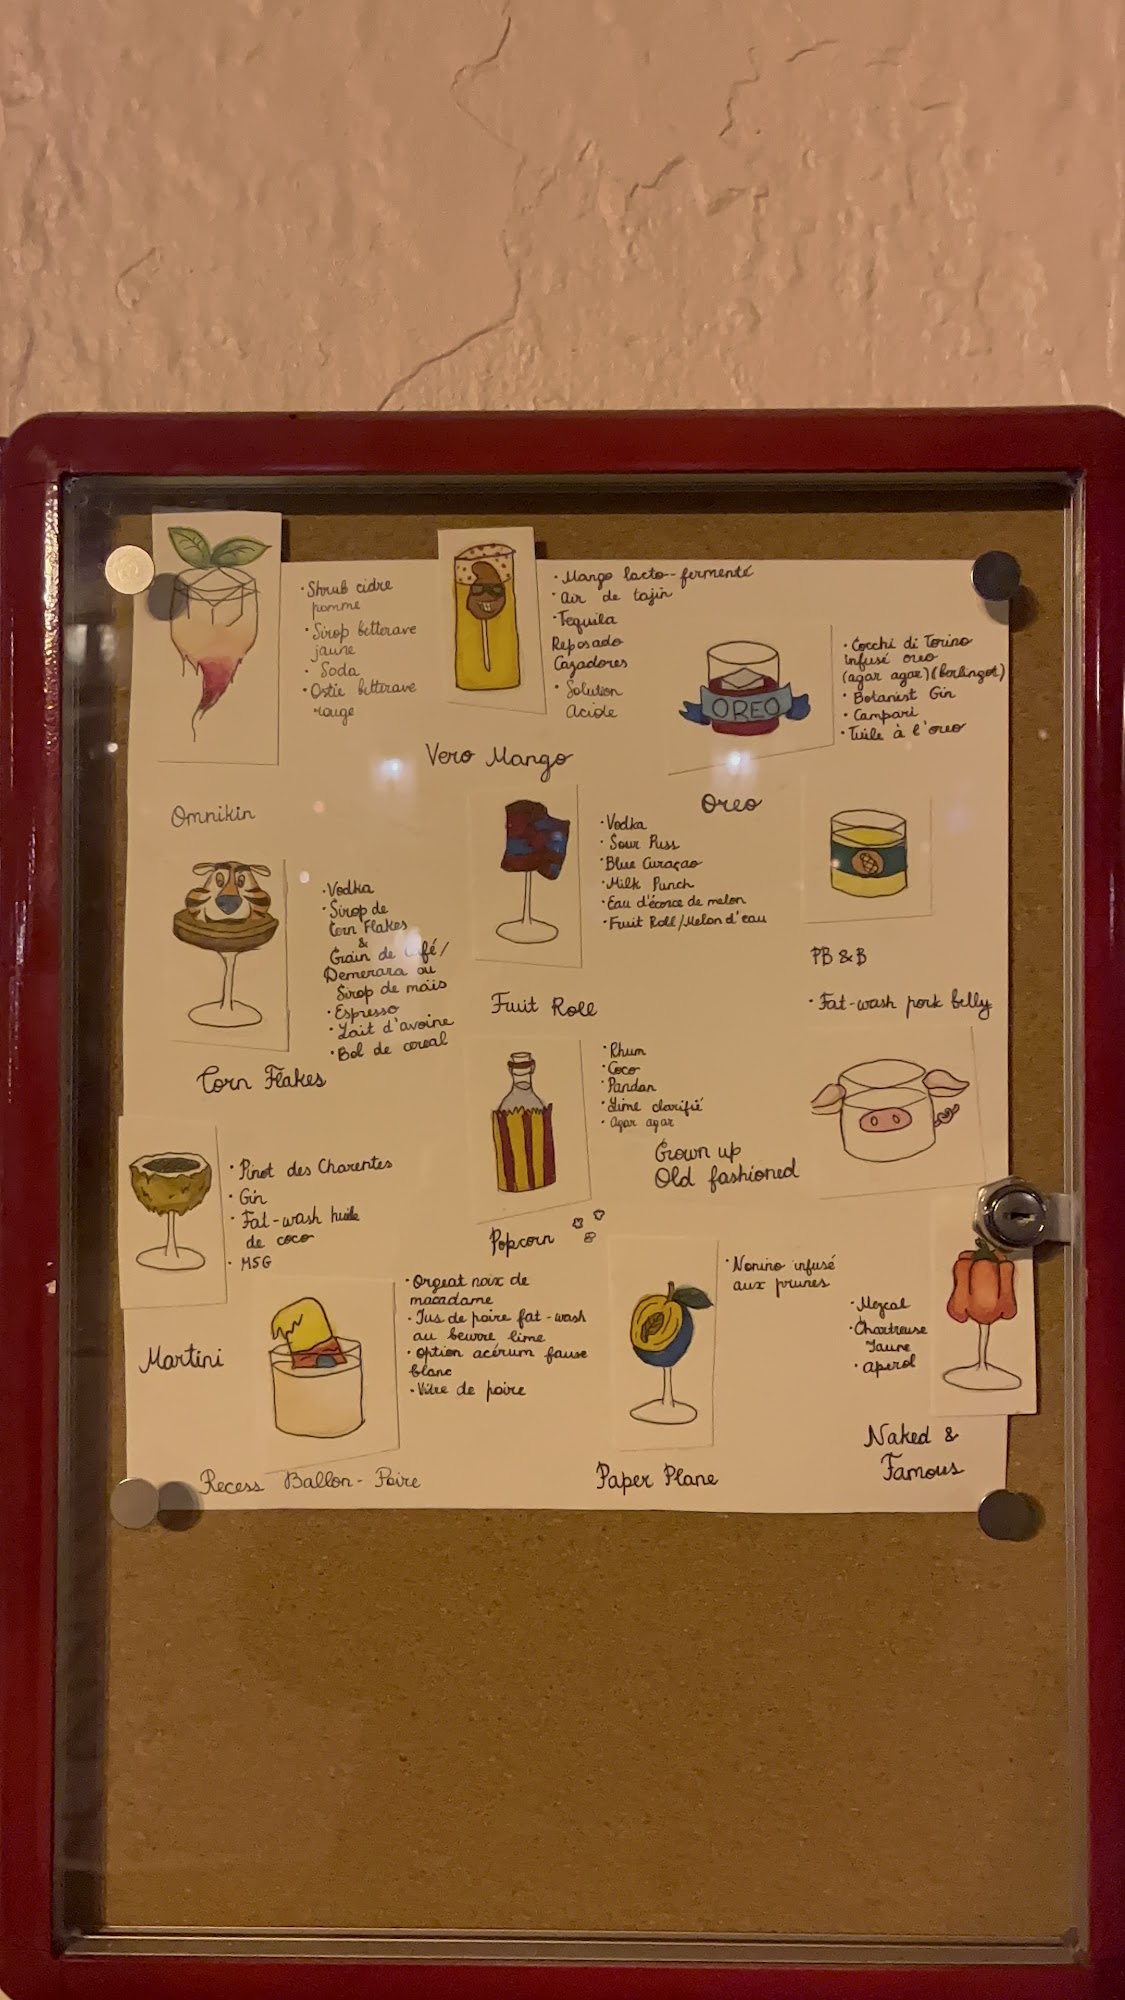 · Shrub cidre
pomme
· Sirop betterave
jaune
· Soda
· Ostie betterave
rouge
Omnikin
· Mango lacto-fermenté
· Air de tajin
· Tequila
Reposado
Cazadores
· Solution
Acide
Vero Mango
OREO
· Cocchi di Torino
infusé oreo
(agar agar)(berlingot)
· Botanist Gin
· Campari
· Tuile à l'oreo
Oreo
· Vodka
· Sirop de
Corn Flakes
&
Grain de Café/
Demerara ou
Sirop de maïs
· Espresso
· Lait d'avoine
· Bol de cereal
Corn Flakes
· Vodka
· Sour Puss
· Blue Curaçao
· Milk Punch
· Eau d'écorce de melon
· Fruit Roll/Melon d'eau
Fruit Roll
PB & B
· Fat-wash pork belly
Grown up
Old fashioned
· Rhum
· Coco
· Pandan
· Lime clarifié
· Agar agar
Popcorn
· Pinot des Charentes
· Gin
· Fat-wash huile
de coco
· MSG
Martini
· Orgeat noix de
macadame
· Jus de poire fat-wash
au beurre lime
· Option acérum fause
blanc
· Vitre de poire
Recess Ballon-Poire
· Nonino infusé
aux prunes
Paper Plane
· Mezcal
· Chartreuse
Jaune
· aperol
Naked &
Famous